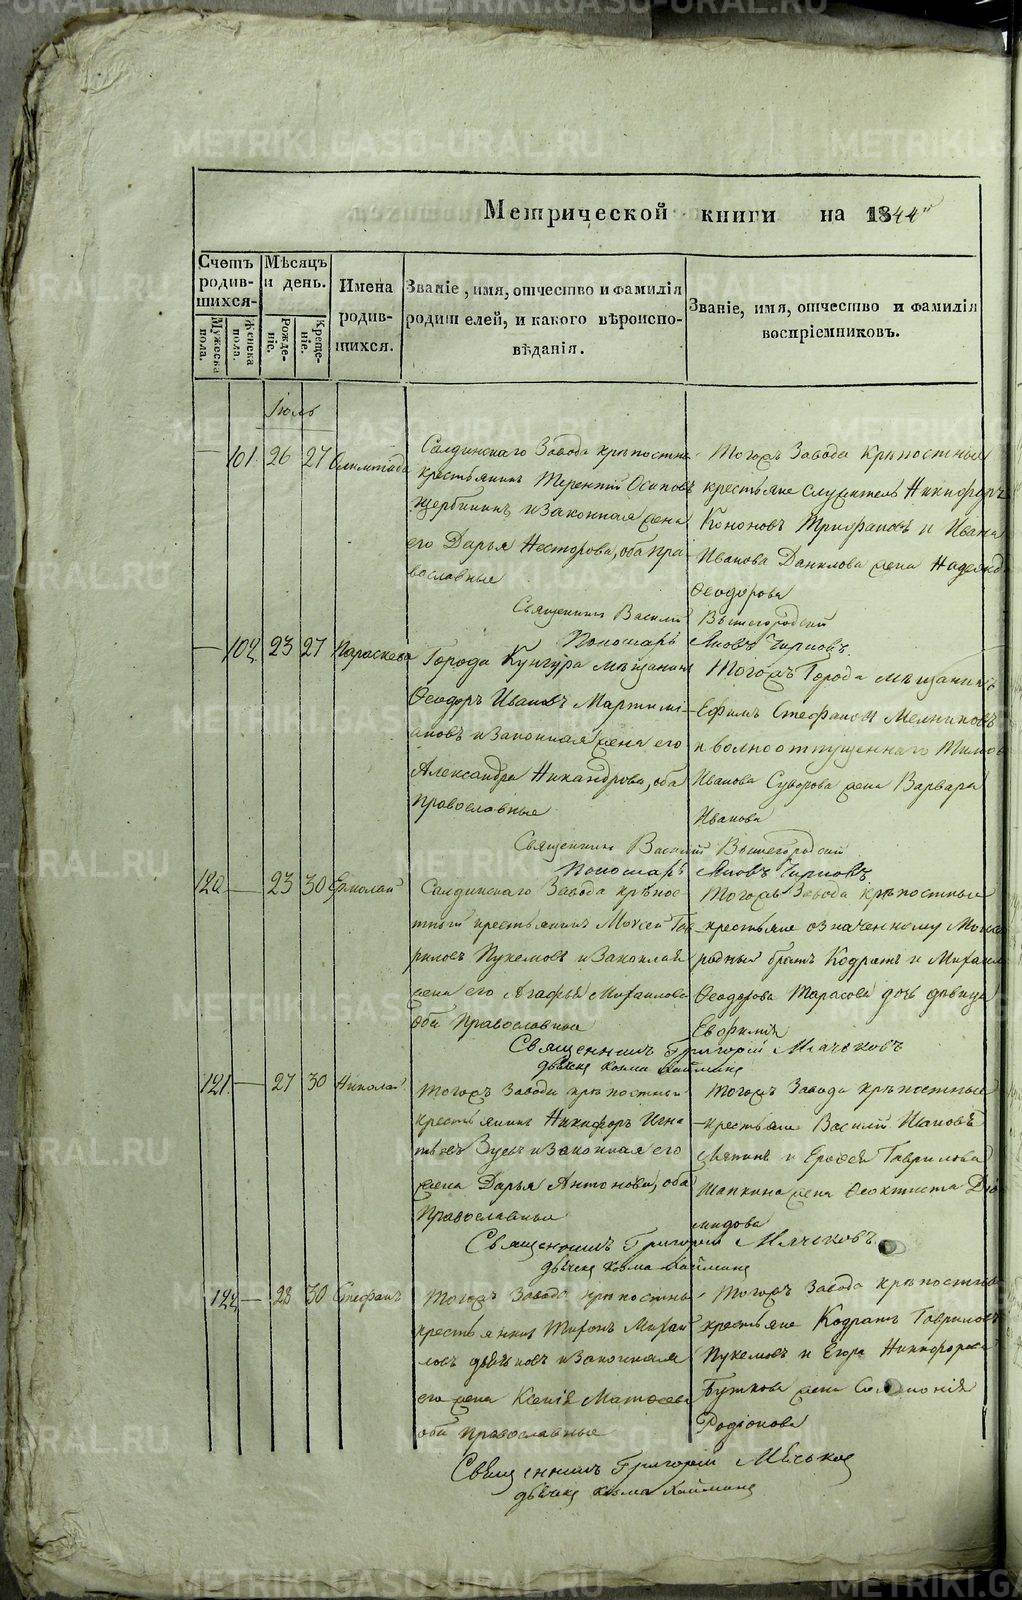 Метрической книги на 1844й
Счетъ родившихся.
Мѣсяцъ и день.
Имена родившихся.
Званіе, имя, отчество и фамилія родителей, и какого вѣроисповѣданія.
Званіе, имя, отчество и фамилія воспріемниковъ.
Мужеска пола.
Женска пола.
Рожденіе.
Крещеніе.
Іюль
— 101 26 27 Олимпіада
Салдинскаго Завода крѣпостной
крестьянинъ Терентій Осиповъ
Щербининъ и законная жена
его Дарья Несторова, оба пра-
вославные
Тогожъ Завода Крѣпостные
крестьяне служитель Никифоръ
Кононовъ Трифановъ и Ивана
Иванова Данилова жена Надежда
Феодорова
Священникъ Василій Вышегородскій
Пономарь Яковъ Чирковъ.
— 102 23 27 Параскева
Города Кунгура мѣщанинъ
Феодоръ Ивановъ Мартиміановъ
и законная жена его
Александра Никандрова, оба
православные
Тогожъ Города мѣщанинъ
Ефимъ Стефановъ Мельниковъ
и вольноотпущеннаго
Иванова Суворова жена Варвара
Иванова
Священникъ Василій Вышегородскій
Пономарь Яковъ Чирковъ
120 — 23 30 Ермолай
Салдинскаго Завода крѣпос-
тный крестьянинъ Моисей Гав-
риловъ Пукемовъ и законная
жена его Агафья Михайлова
оба православные
Тогожъ Завода крѣпостные
крестьяне означенному
родный братъ Кодратъ и Михаила
Феодорова Тарасова дочь дѣвица
Евфимія
Священникъ Григорій Мячковъ
дьячекъ Козма
121 — 27 30 Николай
Тогожъ Завода крѣпостный
крестьянинъ Никифоръ Игна-
тьевъ Зуевъ и законная его
жена Дарья Антонова, оба
Православные
Тогожъ Завода крѣпостные
крестьяне Василій Ивановъ
и Ерофея Гаврилова
Шапкина жена Феоктиста Діо-
мидова
Священникъ Григорій Мячковъ
дьячекъ Козма
122 — 28 30 Стефанъ
Тогожъ Завода крѣпостный
крестьянинъ Тихонъ Михай-
ловъ и законная
его жена Ксенія Матфеева
оба православные
Тогожъ Завода крѣпостные
крестьяне Кодратъ Гавриловъ
Пукемовъ и Егора Никифорова
Буткова жена Соломонія
Родіонова
Священникъ Григорій Мячковъ
дьячекъ Козма
METRIKI.GASO-URAL.RU